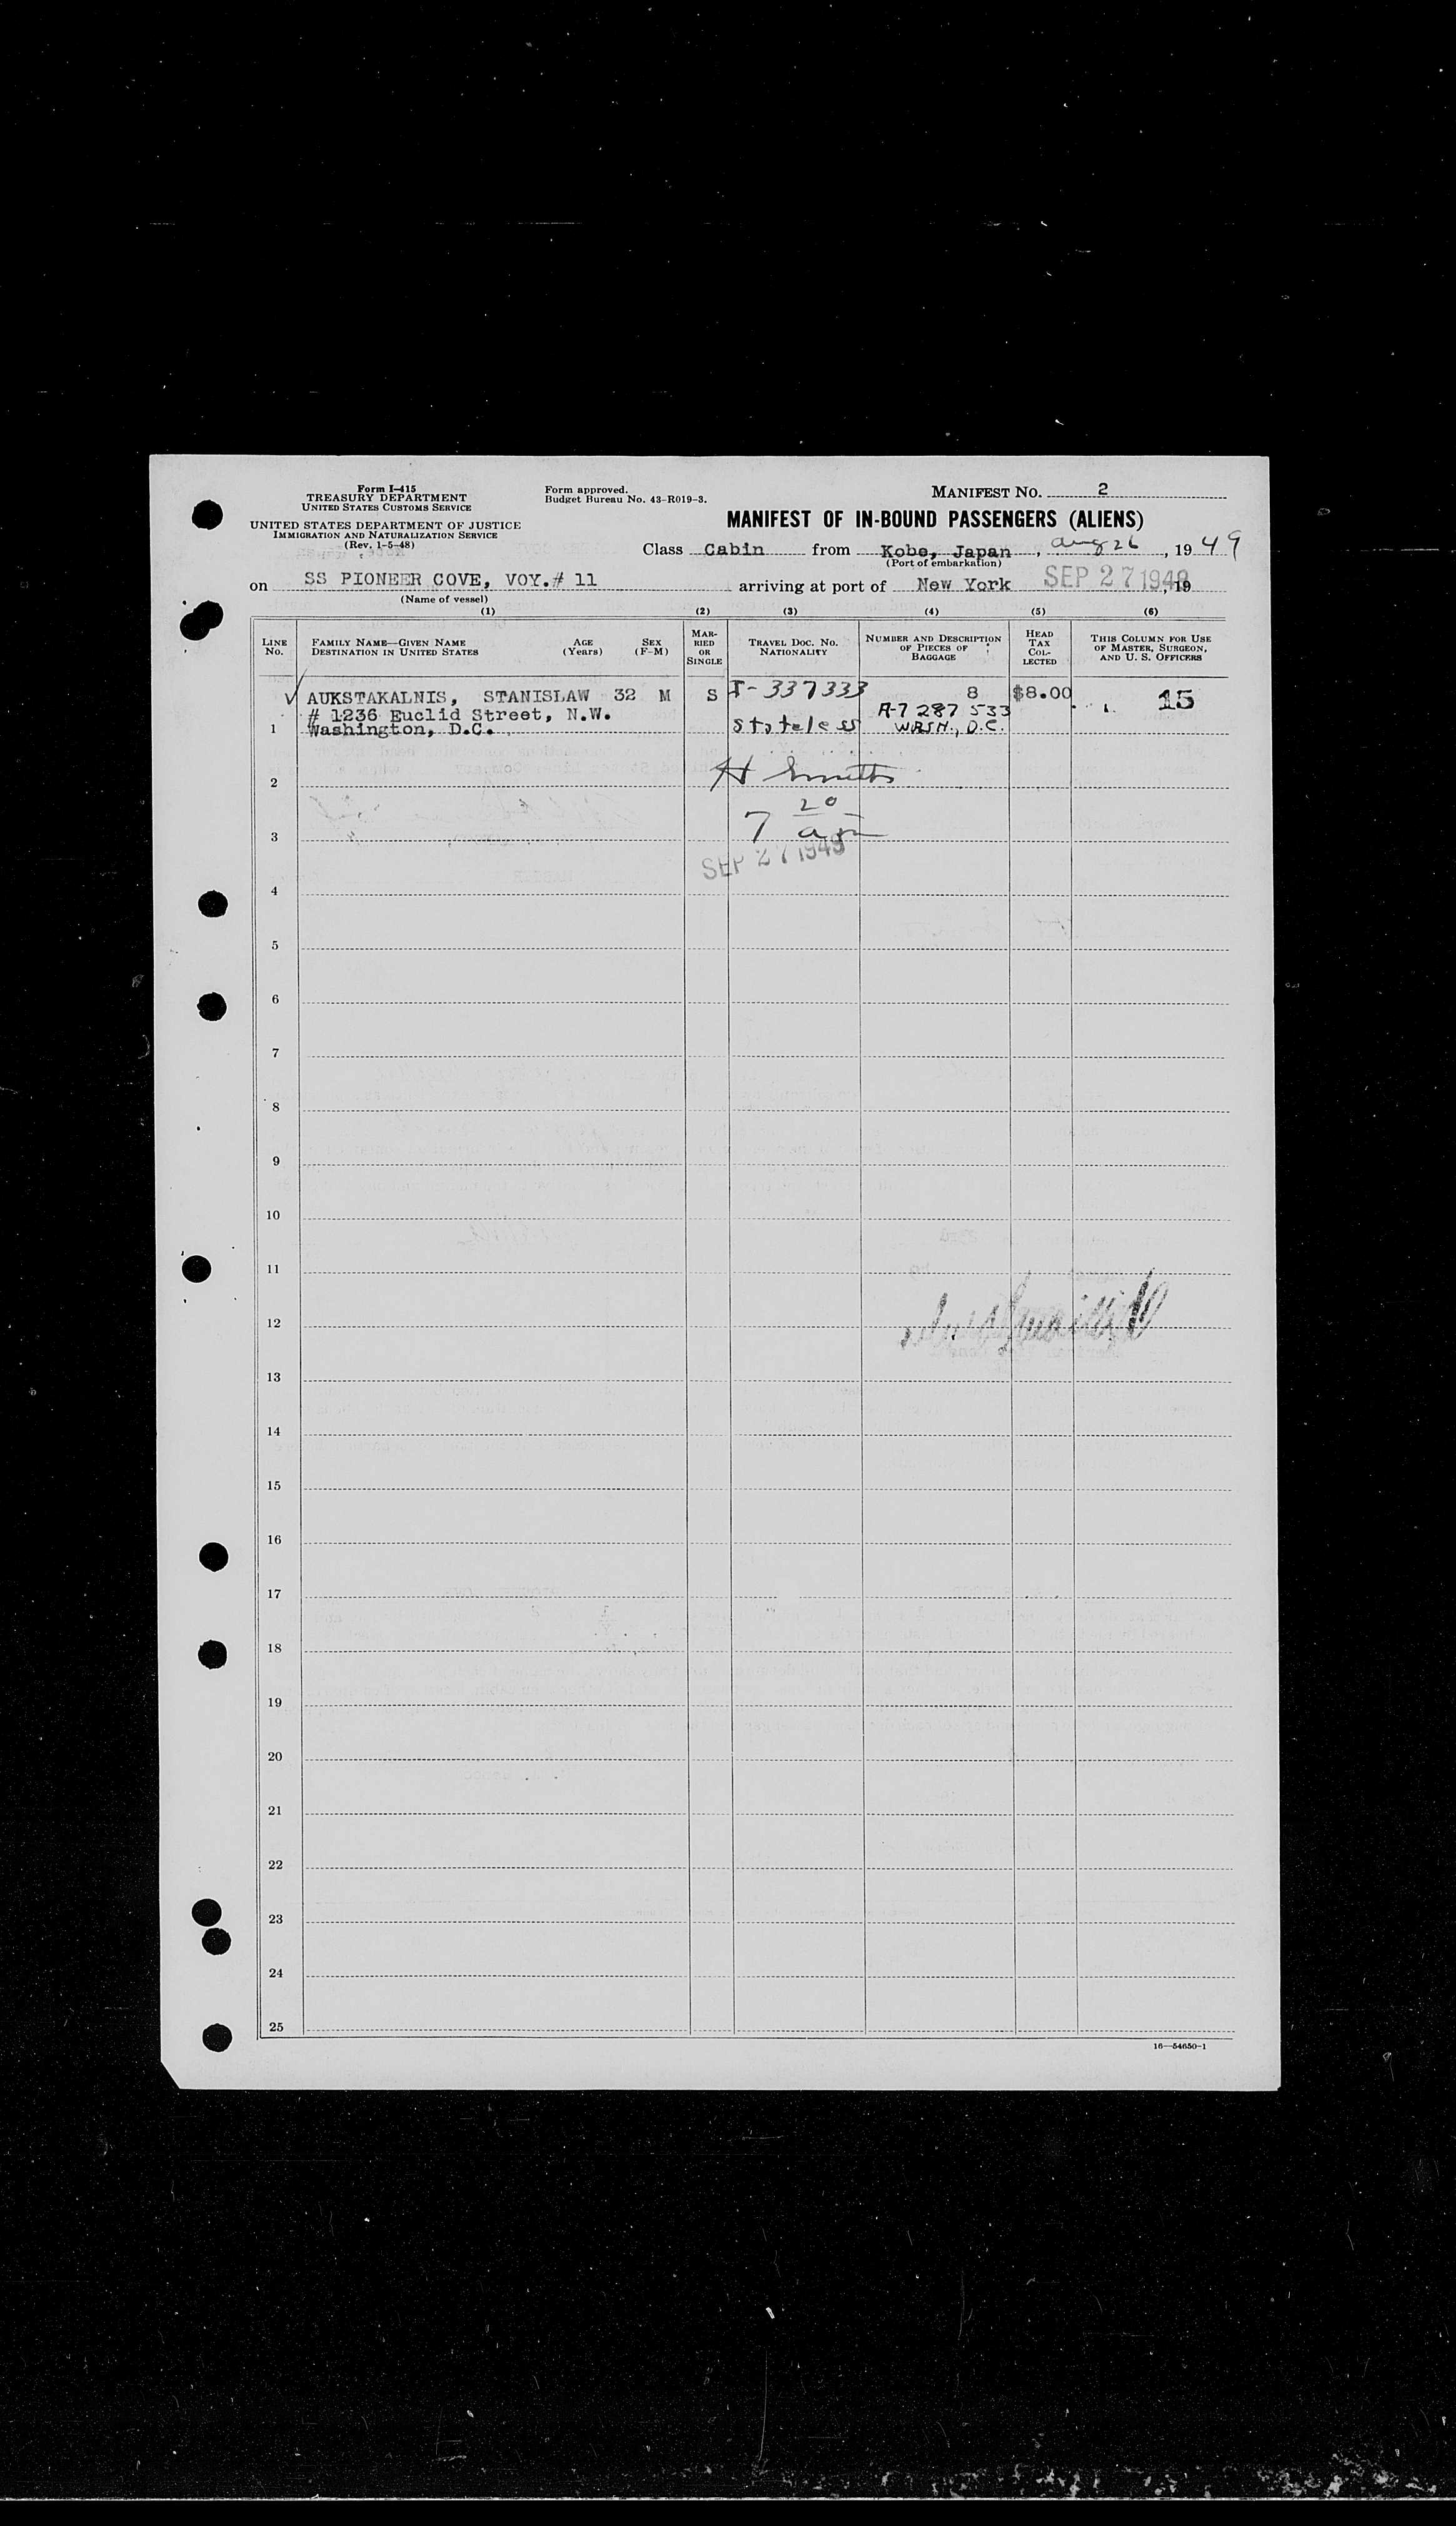 Form I-415
TREASURY DEPARTMENT
UNITED STATES CUSTOMS SERVICE
UNITED STATES DEPARTMENT OF JUSTICE
IMMIGRATION AND NATURALIZATION SERVICE
(Rev. 1-5-48)
Form approved.
Budget Bureau No. 43-R019-3.
MANIFEST NO. 2
MANIFEST OF IN-BOUND PASSENGERS (ALIENS)
Class Cabin from Kobe, Japan, Aug 26, 1949
(Port of embarkation)
on SS PIONEER COVE, VOY.# 11 arriving at port of New York SEP 27 1949, 19
(Name of vessel)
(1) (2) (3) (4) (5) (6)
LINE No. FAMILY NAME—GIVEN NAME DESTINATION IN UNITED STATES AGE (Years) SEX (F-M) MARRIED OR SINGLE TRAVEL DOC. NO. NATIONALITY NUMBER AND DESCRIPTION OF PIECES OF BAGGAGE HEAD TAX COLLECTED THIS COLUMN FOR USE OF MASTER, SURGEON, AND U. S. OFFICERS
AUKSTAKALNIS, STANISLAW 32 M S I-337333 8 $8.00 15
# 1236 Euclid Street, N.W. A-7 287 533
1 Washington, D.C. stateless WASH., D.C.
2 H Smith
7 20 am
3
SEP 27 1949
4
5
6
7
8
9
10
11
12
13
14
15
16
17
18
19
20
21
22
23
24
25
16—54650-1